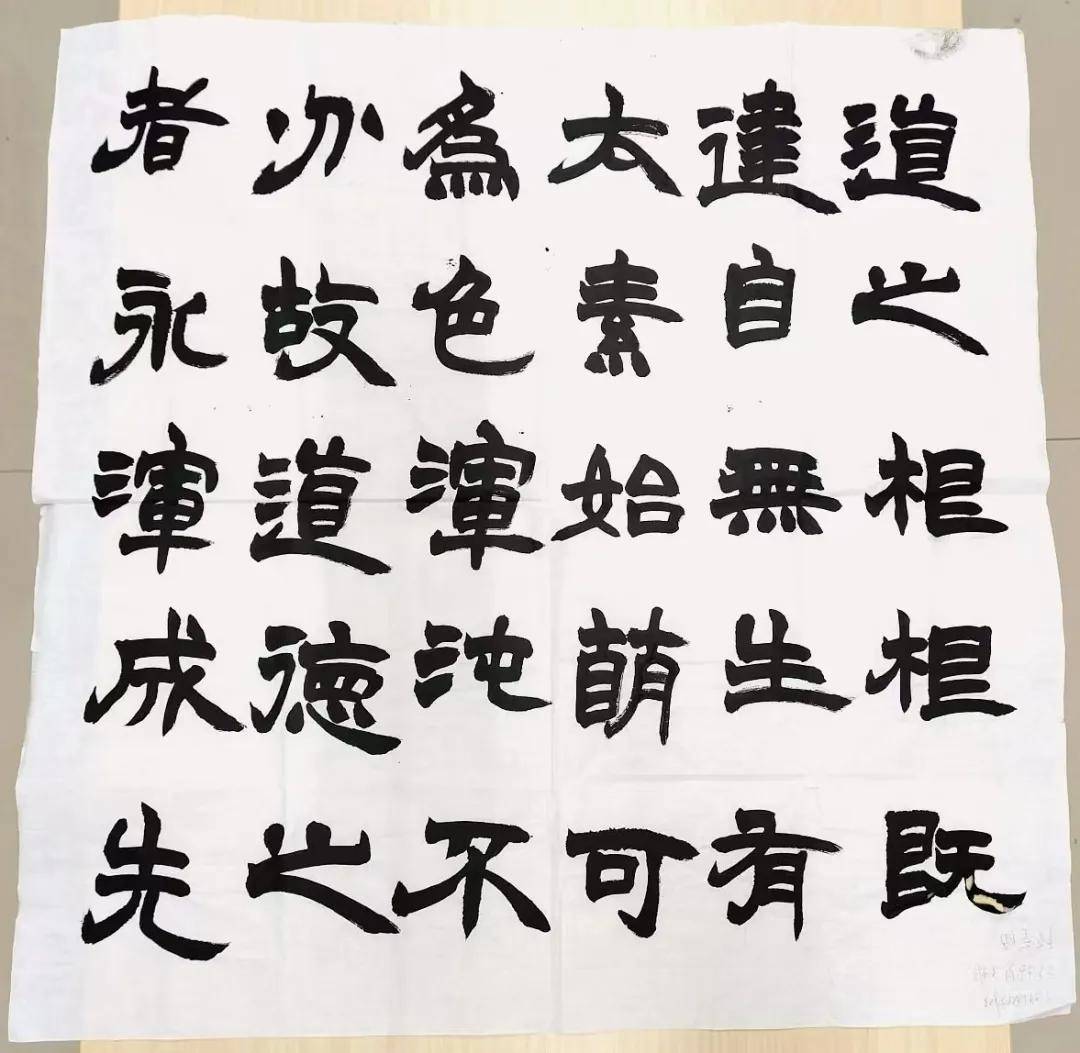 道之根根既
建自無生有
太素始萌可
爲色渾沌不
分故道德之
者永渾成先